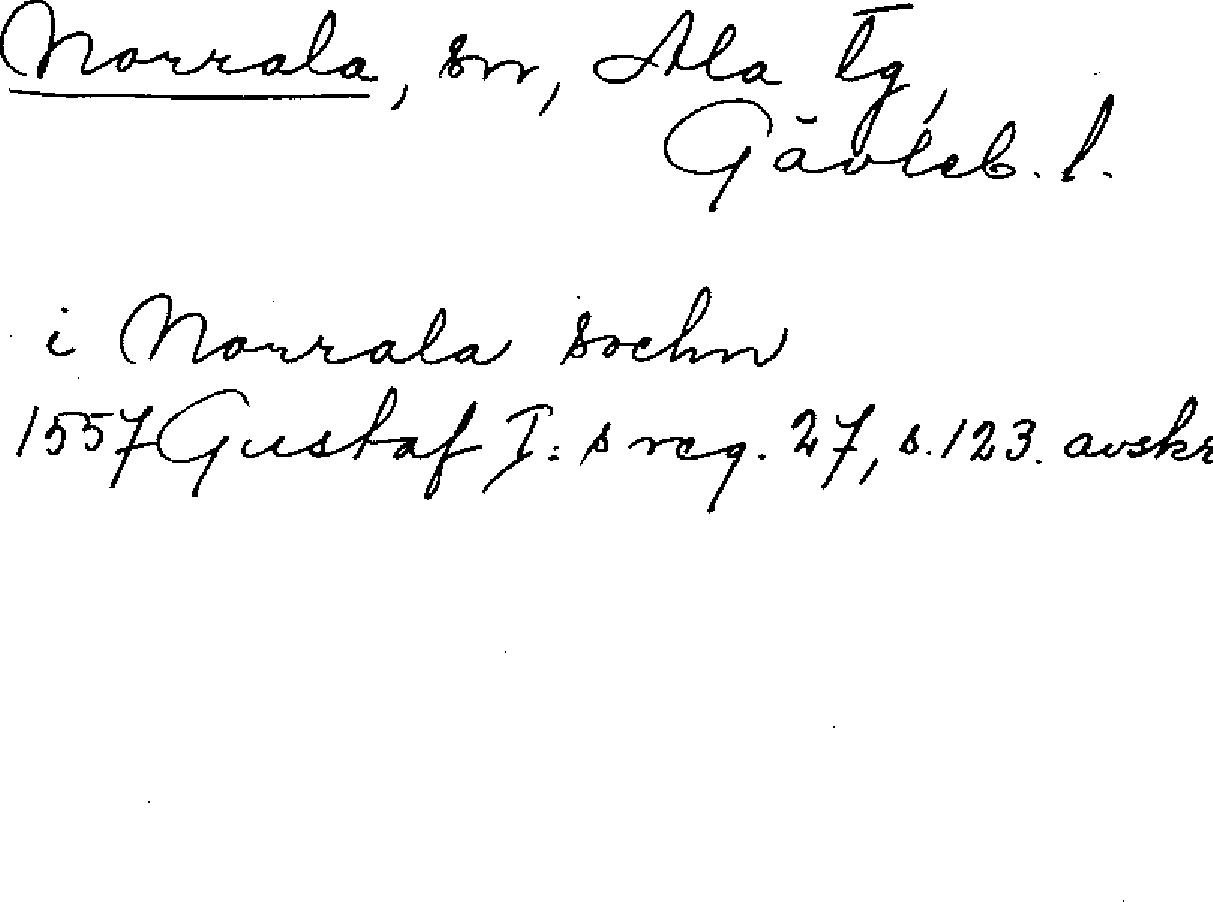 Norrala, sn, Ala tg,
Gävleb. l.
i Norrala sochn
1557 Gustaf I:s reg. 27, s. 123. avskr